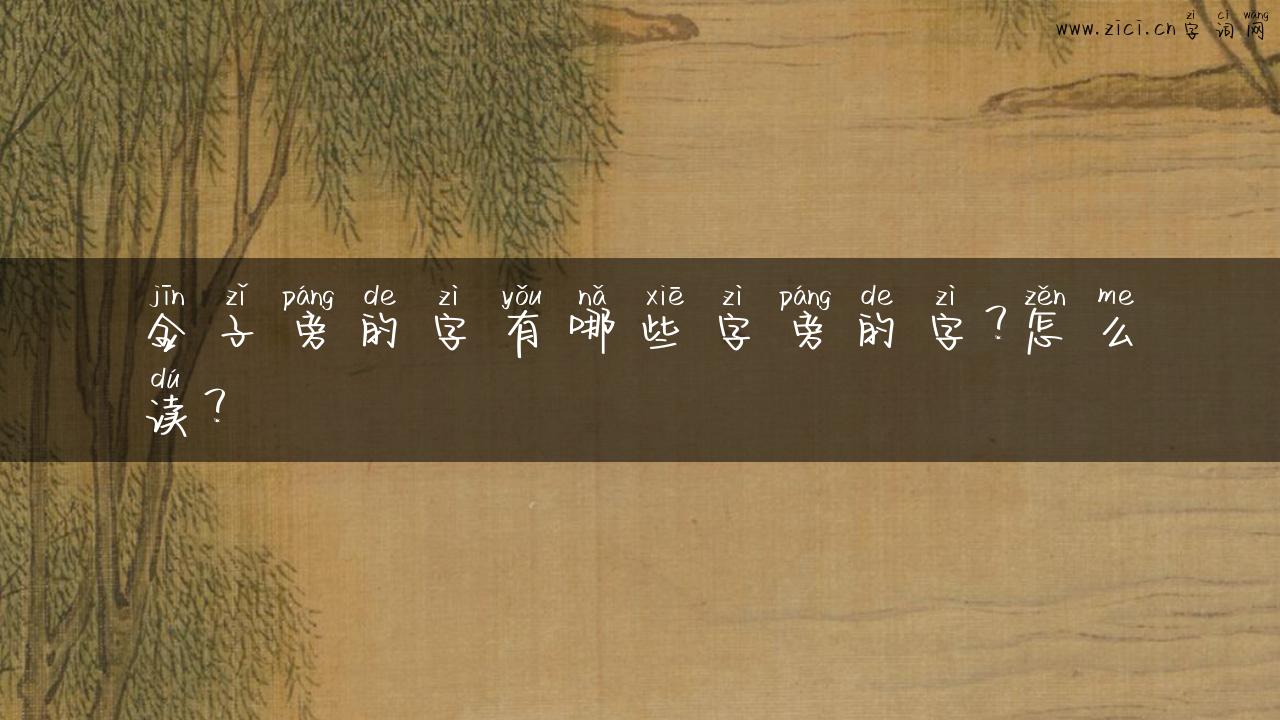 www.zici.cn zì cí wǎng 字词网
jīn zǐ páng de zì yǒu nǎ xiē zì páng de zì zěn me
金子旁的字有哪些字旁的字?怎么
dú
读?